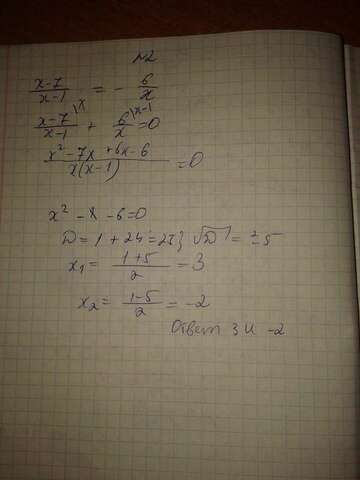 №2
x-7/x-1 = - 6/x
x-7/x-1 \x + 6/x \x-1 =0
x² -7x +6x-6/x(x-1) =0
x² - x -6=0
D= 1 + 24 =25; √D = ±5
x₁ = 1+5/2 = 3
x₂ = 1-5/2 = -2
Ответ 3 и -2